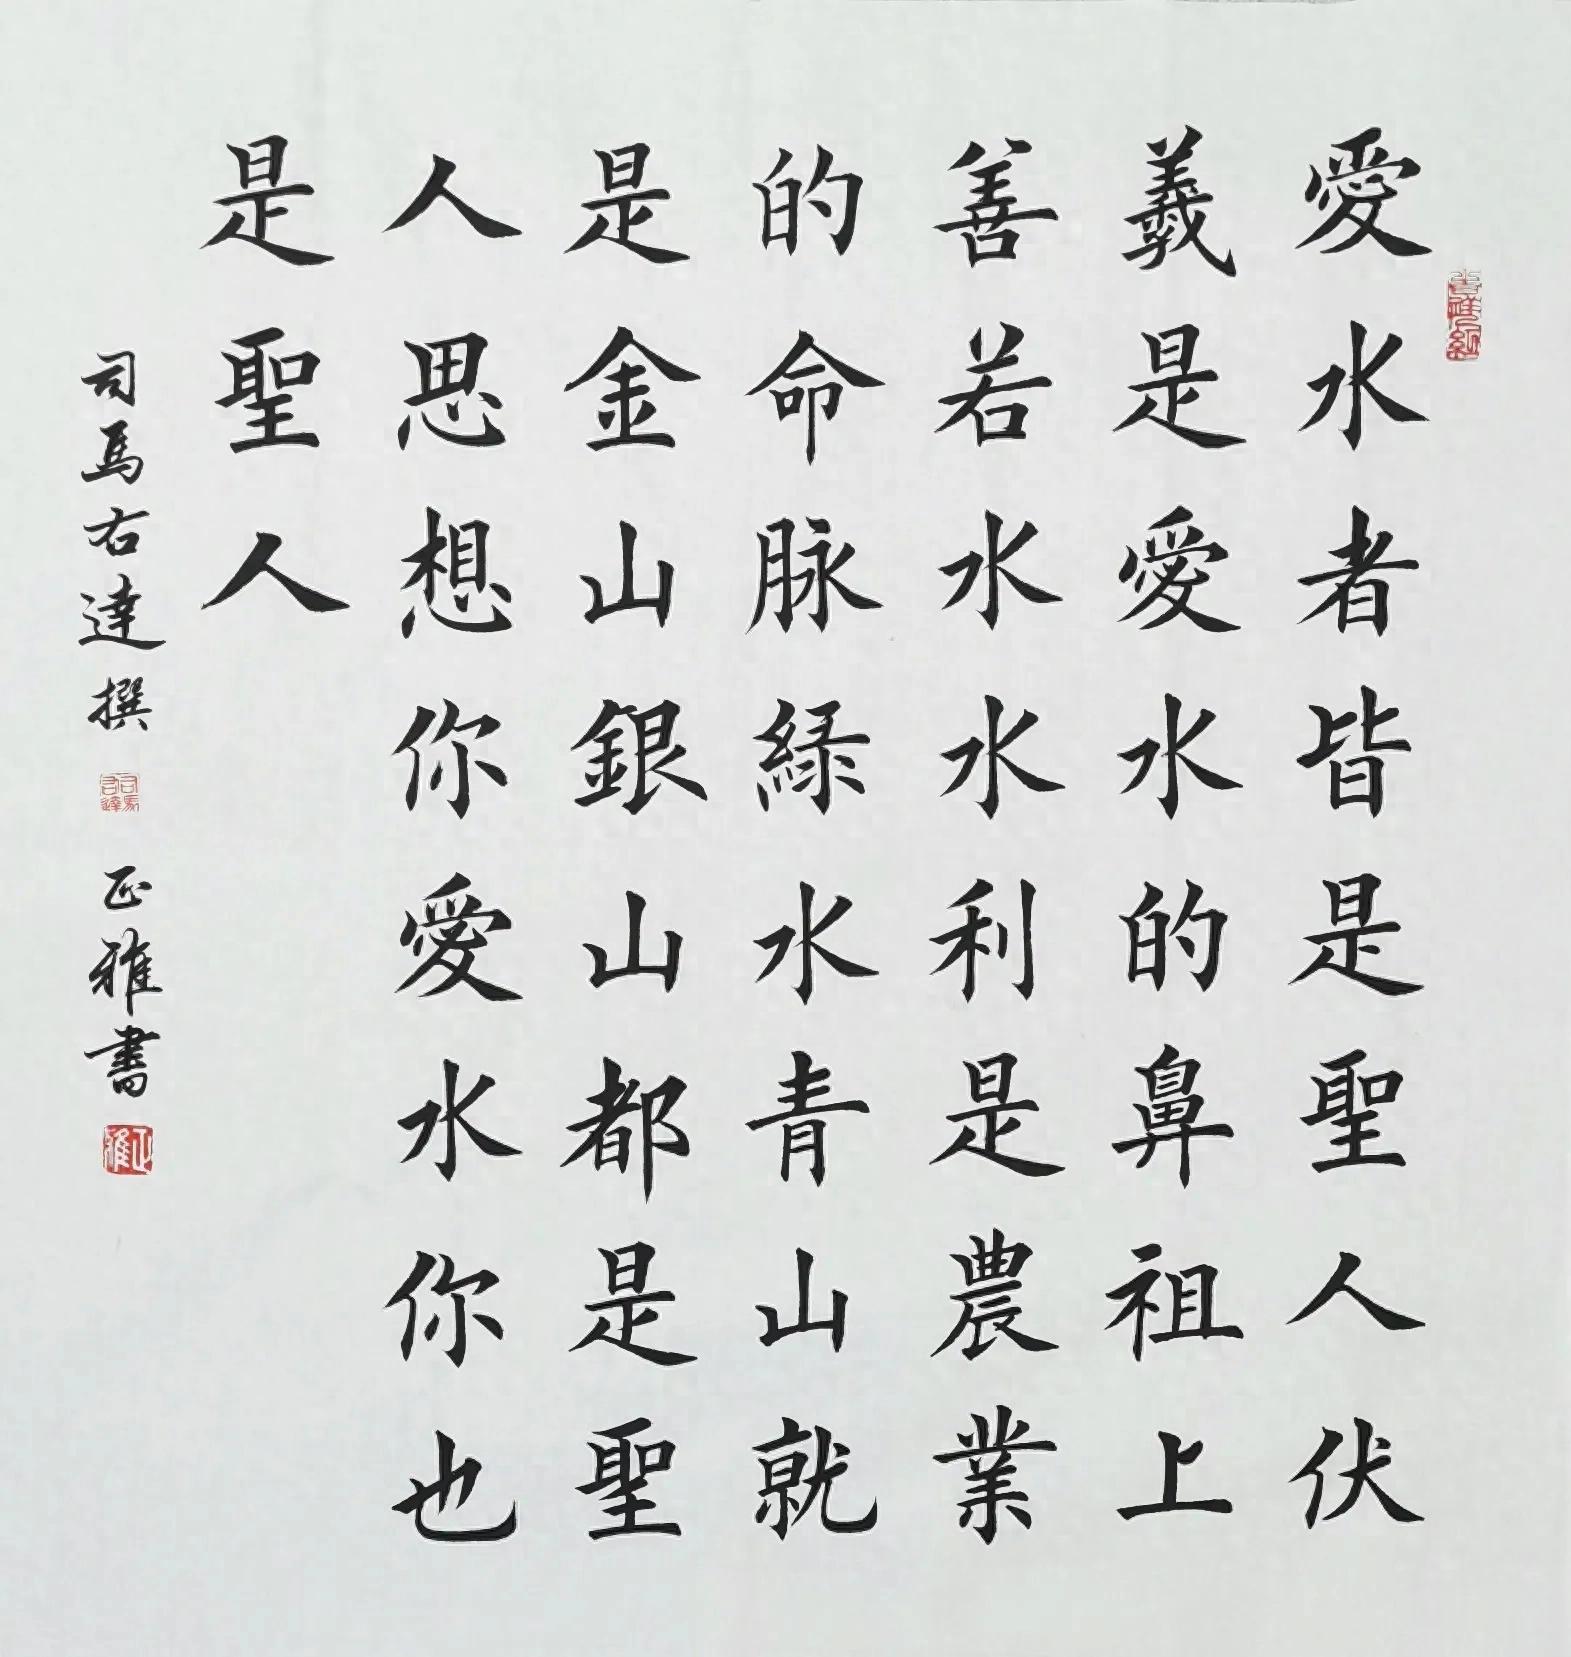 愛水者皆是聖人伏
羲是愛水的鼻祖上
善若水水利是農業
的命脉綠水青山就
是金山銀山都是聖
人思想你愛水你也
是聖人
司馬右達撰 正雅書
司馬右達
正雅